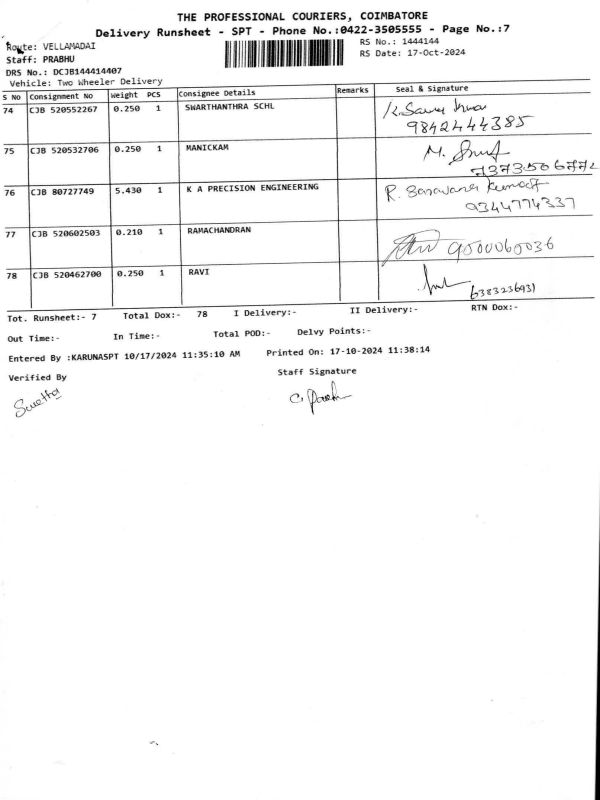 THE PROFESSIONAL COURIERS, COIMBATORE
Delivery Runsheet - SPT - Phone No.:0422-3505555 - Page No.:7
Route: VELLAMADAI
RS No.: 1444144
Staff: PRABHU
RS Date: 17-Oct-2024
DRS No.: DCJB144414407
Vehicle: Two Wheeler Delivery
S No Consignment No Weight PCS Consignee Details Remarks Seal & Signature
74 CJB 520552267 0.250 1 SWARTHANTHRA SCHL
9842444385
75 CJB 520532706 0.250 1 MANICKAM M.
7373506772
76 CJB 80727749 5.430 1 K A PRECISION ENGINEERING R. Saravana Kumar
9344774337
77 CJB 520602503 0.210 1 RAMACHANDRAN
9000060036
78 CJB 520462700 0.250 1 RAVI
6383236931
Tot. Runsheet:- 7 Total Dox:- 78 I Delivery:- II Delivery:- RTN Dox:-
Out Time:- In Time:- Total POD:- Delvy Points:-
Entered By :KARUNASPT 10/17/2024 11:35:10 AM Printed On: 17-10-2024 11:38:14
Verified By Staff Signature